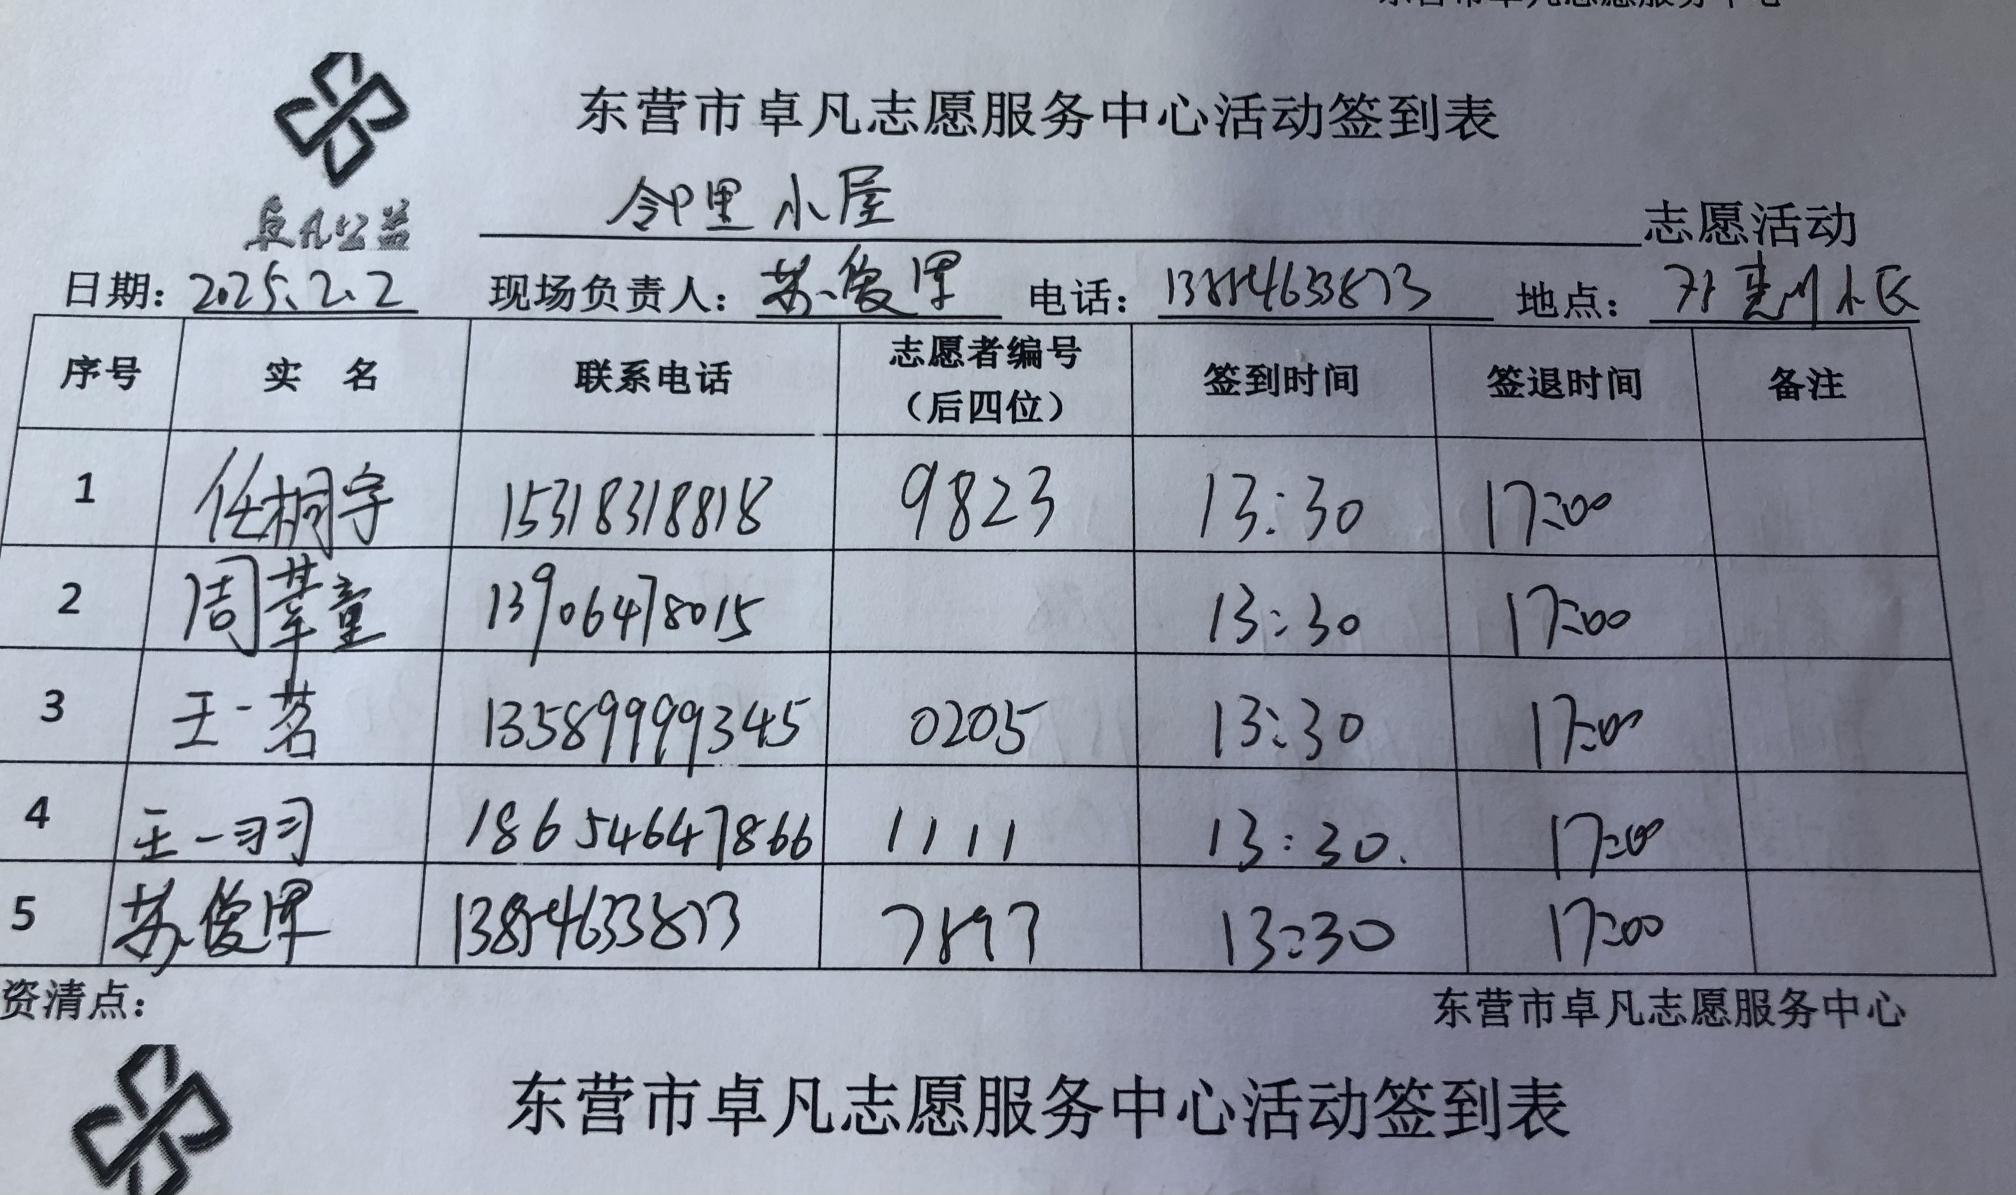 东营市卓凡志愿服务中心
东营市卓凡志愿服务中心活动签到表
卓凡公益
邻里小屋 志愿活动
日期：2025.2.2 现场负责人：苏俊军 电话：13854633873 地点：小区
序号 实 名 联系电话 志愿者编号（后四位） 签到时间 签退时间 备注
1 任桐宇 15318318818 9823 13:30 17:00
2 周莘童 13906478015 13:30 17:00
3 王一茗 13589999345 0205 13:30 17:00
4 王一羽 18654647866 1111 13:30. 17:00
5 苏俊军 13854633873 7897 13:30 17:00
资清点： 东营市卓凡志愿服务中心
东营市卓凡志愿服务中心活动签到表